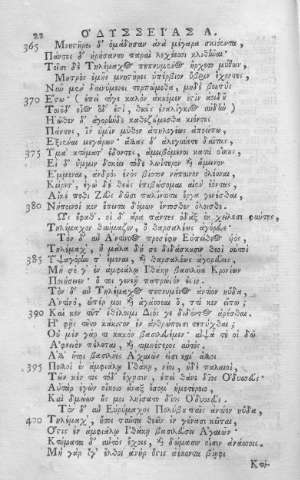 22 ΟΔΥΣΣΕΙΑΣ Α.
365 Μνηστῆρες δ᾽ ὁμάδησαν ἀνὰ μέγαρα σκιόεντα,
Πάντες δ᾽ ἠρήσαντο παραὶ λεχέεσσι κλιθῆναι·
Τοῖσι δὲ Τηλέμαχος πεπνυμένος ἤρχετο μύθων,
Μητρὸς ἐμῆς μνηστῆρες ὑπέρβιον ὕβριν ἔχοντες,
Νῦν μὲν δαινύμενοι τερπώμεθα, μηδὲ βοητύς
370 Ἔστω· (ἐπεὶ τόγε καλὸν ἀκουέμεν ἐστὶν ἀοιδοῦ
Τοιοῦδ᾽ οἷος ὅδ᾽ ἐστὶ, θεοῖς ἐναλίγκιος αὐδήν)
Ἠῶθεν δ᾽ ἀγορήνδε καθεζώμεσθα κιόντες
Πάντες, ἵν᾽ ὑμῖν μῦθον ἀπηλεγέως ἀποείπω,
Ἐξιέναι μεγάρων· ἄλλας δ᾽ ἀλεγύνετε δαῖτας,
375 Ὑμὰ κτήματ᾽ ἔδοντες, ἀμειβόμενοι κατὰ οἴκους.
Εἰ δ᾽ ὑμῖν δοκέει τόδε λωΐτερον καὶ ἄμεινον
Ἔμμεναι, ἀνδρὸς ἑνὸς βίοτον νήποινον ὀλέσθαι,
Κείρετ᾽· ἐγὼ δὲ θεοὺς ἐπιβώσομαι αἰὲν ἐόντας,
Αἴ κέ ποθι Ζεὺς δῶσι παλίντιτα ἔργα γενέσθαι,
380 Νήποινοί κεν ἔπειτα δόμων ἔντοσθεν ὄλοισθε.
Ὣς ἔφαθ᾽. οἱ δ᾽ ἄρα πάντες ὀδὰξ ἐν χείλεσι φύντες,
Τηλέμαχον θαύμαζον, ὃ θαρσαλέως ἀγόρευε.
Τὸν δ᾽ αὖτ᾽ Ἀντίνοος προσέφη Εὐπείθεος υἱός,
Τηλέμαχ᾽, ἦ μάλα δή σε διδάσκουσιν θεοὶ αὐτοὶ
385 Ὑψαγόρην τ᾽ ἔμεναι, καὶ θαρσαλέως ἀγορεύειν.
Μὴ σέ γ᾽ ἐν ἀμφιάλῳ Ἰθάκῃ βασιλῆα Κρονίων
Ποιήσειεν· ὅ τοι γενεῇ πατρώϊόν ἐστι.
Τὸν δ᾽ αὖ Τηλέμαχος πεπνυμένος ἀντίον ηὔδα,
Ἀντίνο᾽, εἴπερ μοι καὶ ἀγάσσεαι ὅ, ττι κεν εἴπω·
390 Καί κεν τοῦτ᾽ ἐθέλοιμι Διός γε διδόντος ἀρέσθαι.
Ἦ φῂς τοῦτο κάκιστον ἐν ἀνθρώποισι τετύχθαι;
Οὐ μὲν γάρ τι κακὸν βασιλευέμεν· αἶψά τέ οἱ δῶ
Ἀφνειὸν πέλεται, καὶ τιμηέστερος αὐτός.
Ἀλλ᾽ ἤτοι βασιλῆες Ἀχαιῶν εἰσὶ καὶ ἄλλοι
395 Πολλοὶ ἐν ἀμφιάλῳ Ἰθάκῃ, νέοι, ἠδὲ παλαιοί,
Τῶν κέν τις τόδ᾽ ἔχῃσιν, ἐπεὶ θάνε δῖος Ὀδυσσεύς·
Αὐτὰρ ἐγὼν οἴκοιο ἄναξ ἔσομ᾽ ἡμετέροιο,
Καὶ δμώων οὕς μοι ληΐσατο δῖος Ὀδυσσεύς.
Τὸν δ᾽ αὖ Εὐρύμαχος Πολύβου παῖς ἀντίον ηὔδα,
400 Τηλέμαχ᾽, ἤτοι ταῦτα θεῶν ἐν γούνασι κεῖται,
Ὅστις ἐν ἀμφιάλῳ Ἰθάκῃ βασιλεύσει Ἀχαιῶν·
Κτήματα δ᾽ αὐτὸς ἔχοις, καὶ δώμασιν οἷσιν ἀνάσσοις.
Μὴ γὰρ ὅγ᾽ ἔλθοι ἀνὴρ ὅστις ἀέκοντα βίηφι
Κτή-